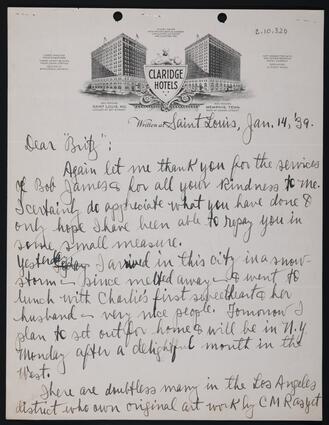 2.10.320
CLARIDGE
HOTELS
SAINT LOUIS, MO.
MEMPHIS, TENN.
Written at Saint Louis, Jan. 14, '39.
Dear "Britz":
Again let me thank you for the services
of Bob James & for all your kindness to me.
I certainly do appreciate what you have done &
only hope I have been able to repay you in
some small measure.
Yesterday I arrived in this city in a snow-
storm – since melted away – & went to
lunch with Charlie's first sweetheart & her
husband – very nice people. Tomorrow I
plan to set out for home & will be in N.Y
Monday after a delightful month in the
West.
There are doubtless many in the Los Angeles
district who own original art work by C M R